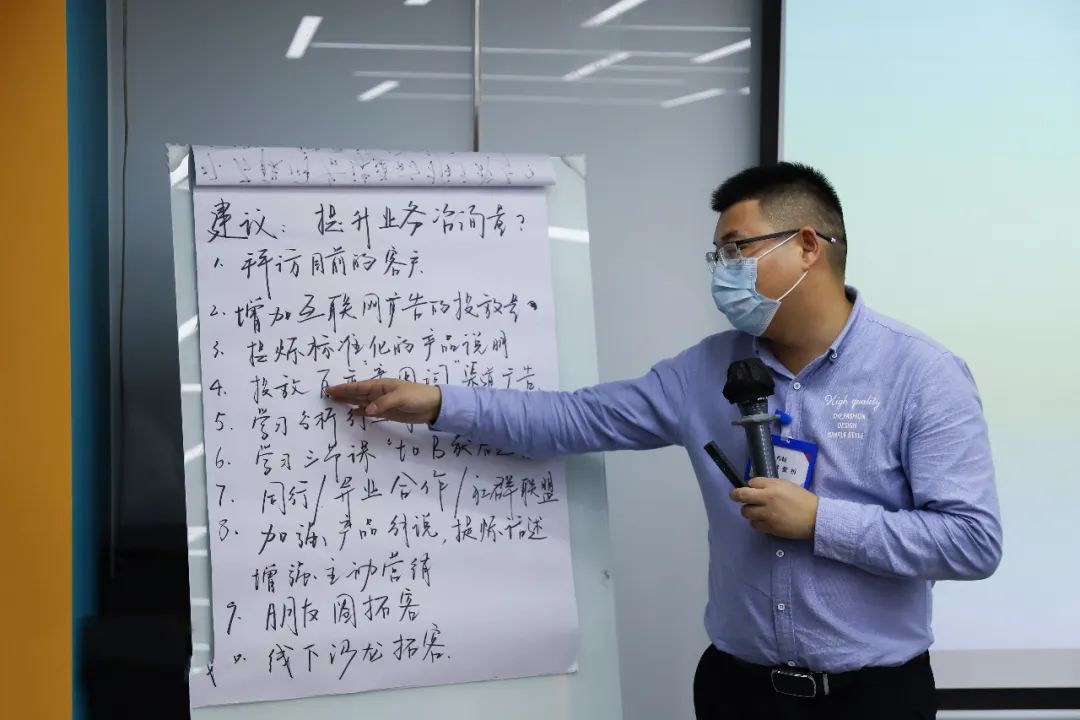 建议: 提升业务咨询者?
1. 拜访目前的客户
2. 增加互联网广告的投放
3. 提炼标准化的产品说明
4. 投放 渠道广告
5. 学习分析
6. 学习三节课
7. 同行/异业合作/社群联盟
8. 加强产品 说, 提炼话述
增强主动营销
9. 朋友圈拓客
10. 线下沙龙拓客.
High quality
DESIGN
SIMPLE STYLE